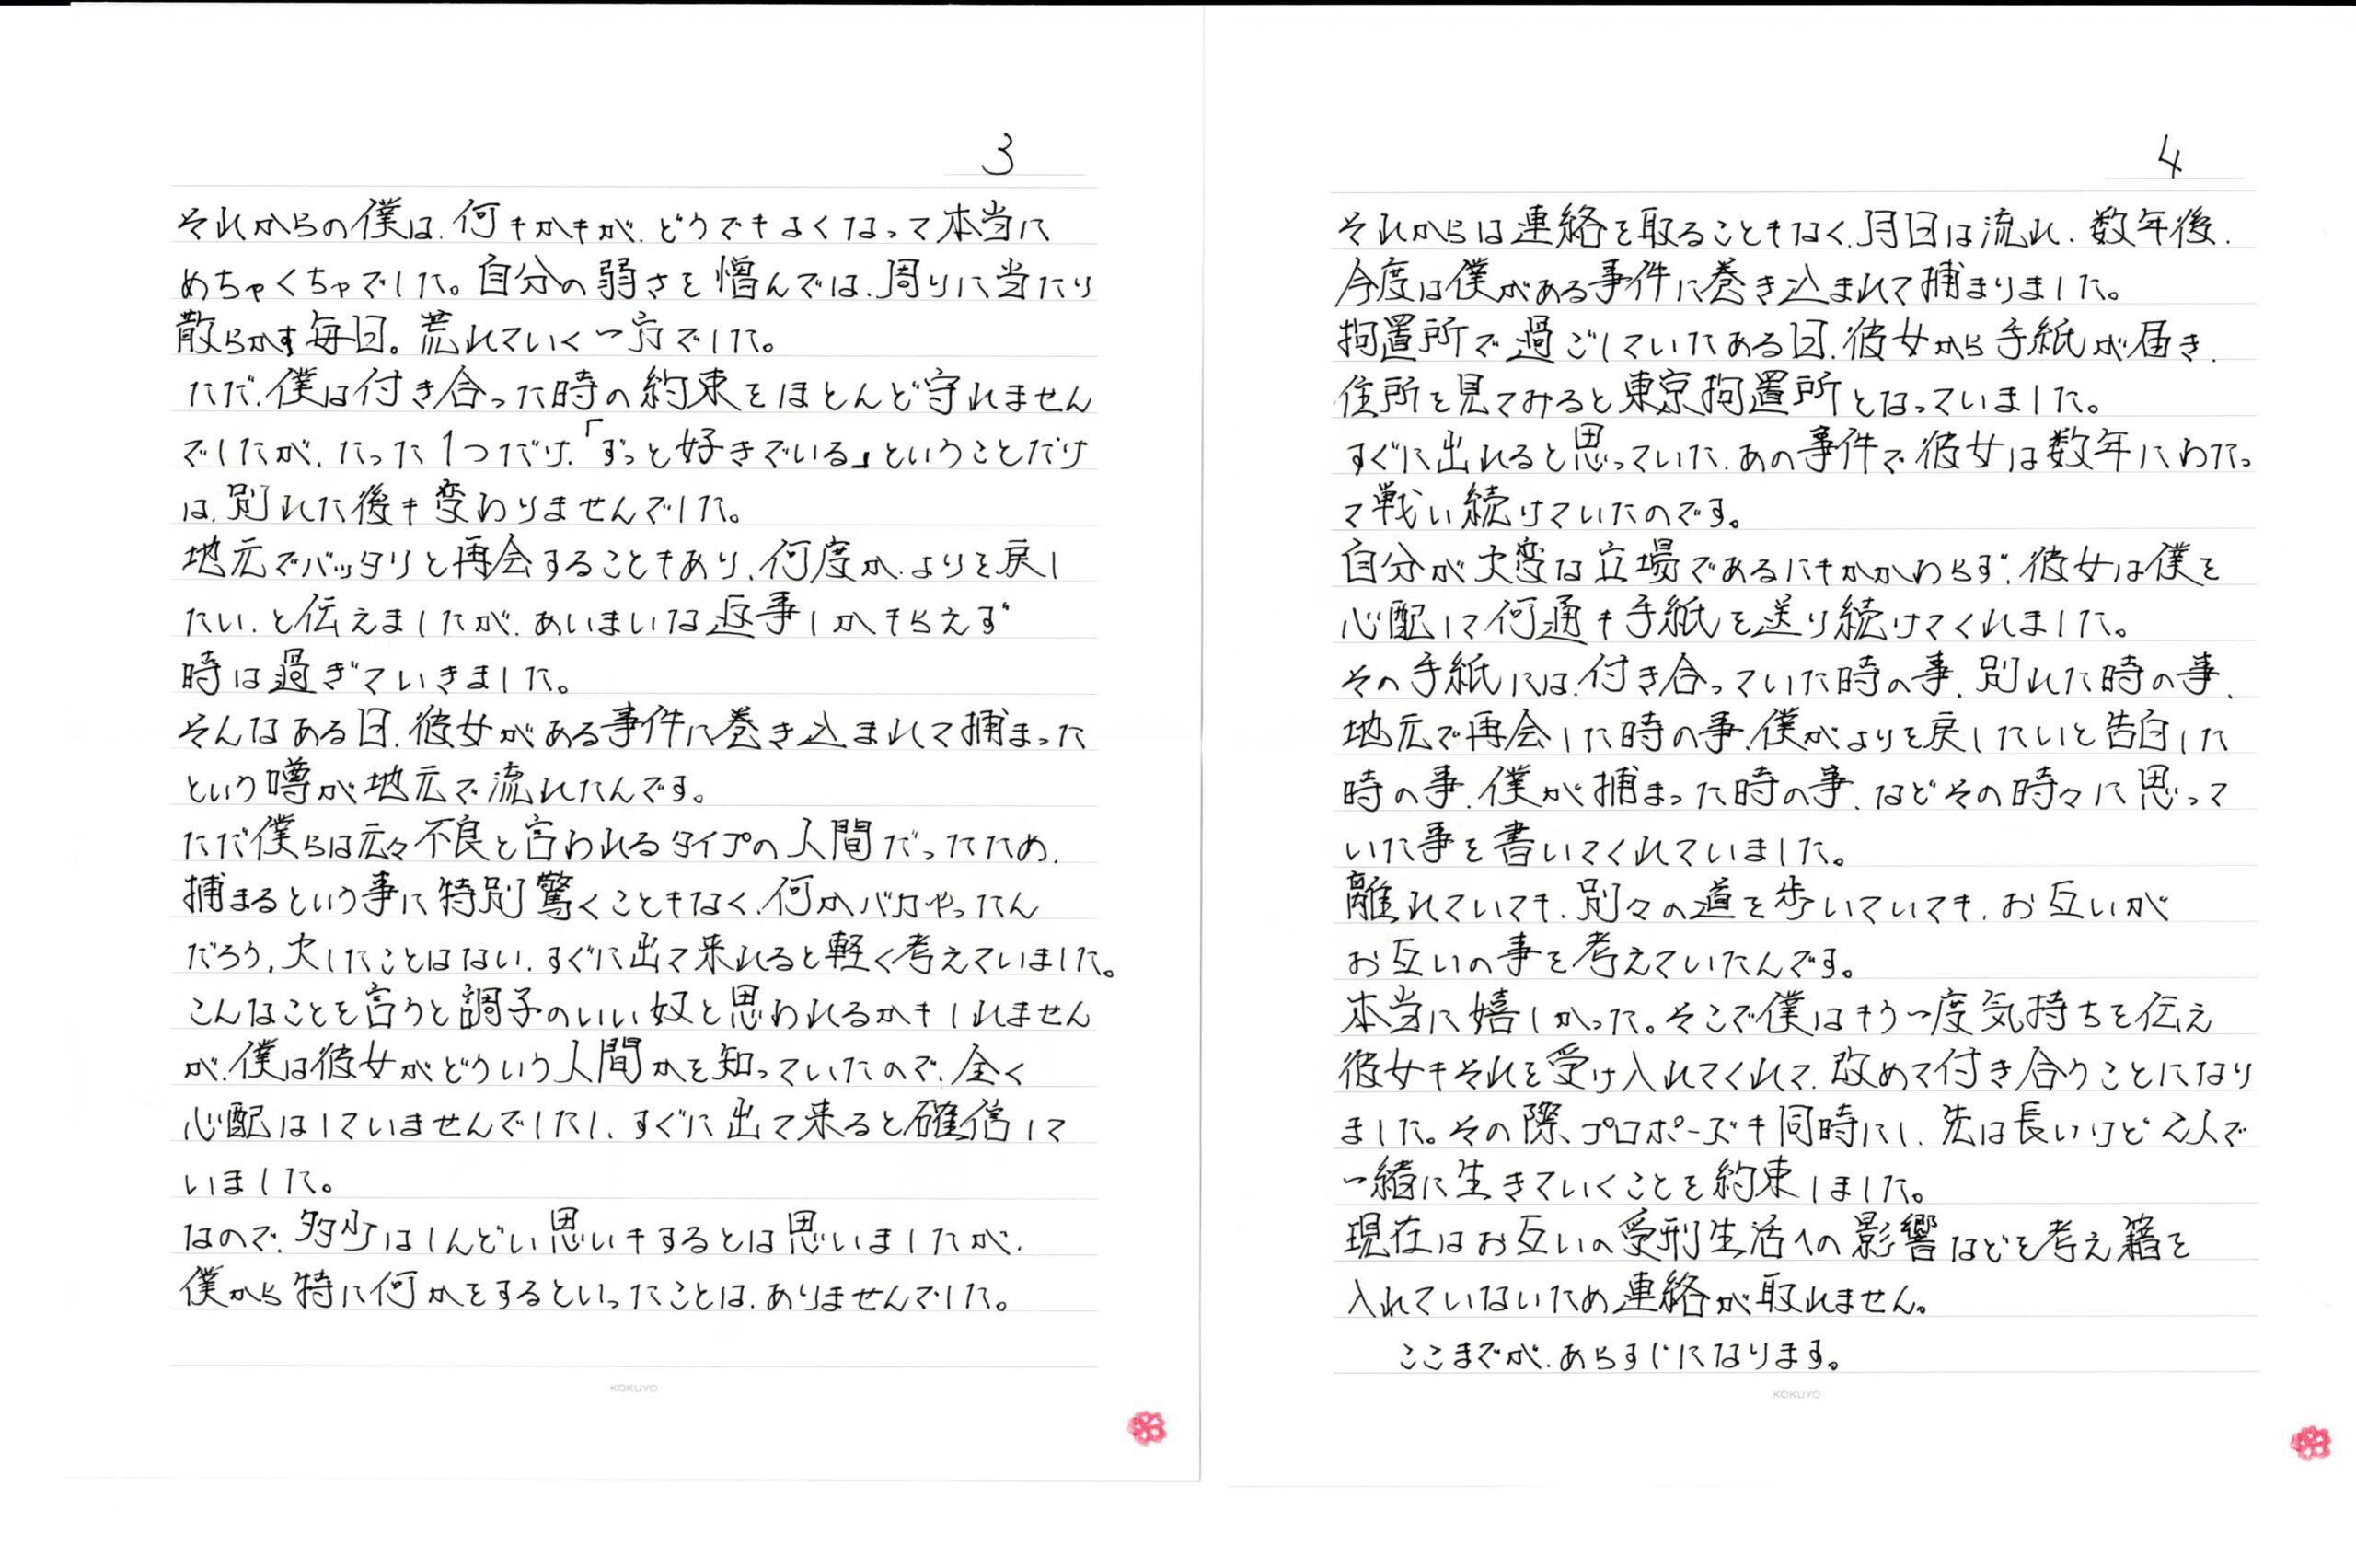 3
それからの僕は、何もかもが、どうでもよくなって本当に
めちゃくちゃでした。自分の弱さを憎んでは、周りに当たり
散らかす毎日。荒れていく一方でした。
ただ、僕は付き合った時の約束をほとんど守れません
でしたが、たった1つだけ、「ずっと好きでいる」ということだけ
は、別れた後も変わりませんでした。
地元でバッタリと再会することもあり、何度か、よりを戻し
たい、と伝えましたが、あいまいな返事しかもらえず
時は過ぎていきました。
そんなある日、彼女がある事件に巻き込まれて捕まった
という噂が地元で流れたんです。
ただ僕らは元々不良と言われるタイプの人間だったため、
捕まるという事に特別驚くこともなく、何かバカやったん
だろう、大したことはない、すぐに出て来れると軽く考えていました。
こんなことを言うと調子のいい奴と思われるかもしれません
が、僕は彼女がどういう人間かを知っていたので、全く
心配はしていませんでしたし、すぐに出て来ると確信して
いました。
なので、多少はしんどい思いもするとは思いましたが、
僕から特に何かをするといったことは、ありませんでした。
KOKUYO
4
それからは連絡を取ることもなく、月日は流れ、数年後、
今度は僕がある事件に巻き込まれて捕まりました。
拘置所で過ごしていたある日、彼女から手紙が届き、
住所を見てみると東京拘置所となっていました。
すぐに出れると思っていた、あの事件で彼女は数年にわたっ
て戦い続けていたのです。
自分が大変な立場であるにもかかわらず、彼女は僕を
心配して何通も手紙を送り続けてくれました。
その手紙には、付き合っていた時の事、別れた時の事、
地元で再会した時の事、僕がよりを戻したいと告白した
時の事、僕が捕まった時の事、などその時々に思って
いた事を書いてくれていました。
離れていても、別々の道を歩いていても、お互いが
お互いの事を考えていたんです。
本当に嬉しかった。そこで僕はもう一度気持ちを伝え
彼女もそれを受け入れてくれて、改めて付き合うことになり
ました。その際、プロポーズも同時にし、先は長いけど2人で
一緒に生きていくことを約束しました。
現在はお互いの受刑生活への影響などを考え籍を
入れていないため連絡が取れません。
ここまでが、あらすじになります。
KOKUYO